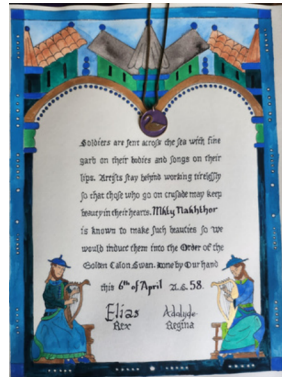 Soldiers are sent across the sea with fine
garb on their bodies and songs on their
lips. Artists stay behind working tirelessly
so that those who go on crusade may keep
beauty in their hearts.
is known to make such beauties so we
would induct them into the Order of the
Golden Calon Swan. Done by Our hand
this 6th of April A.S. 58.
Elias
Rex
Adelyde
Regina